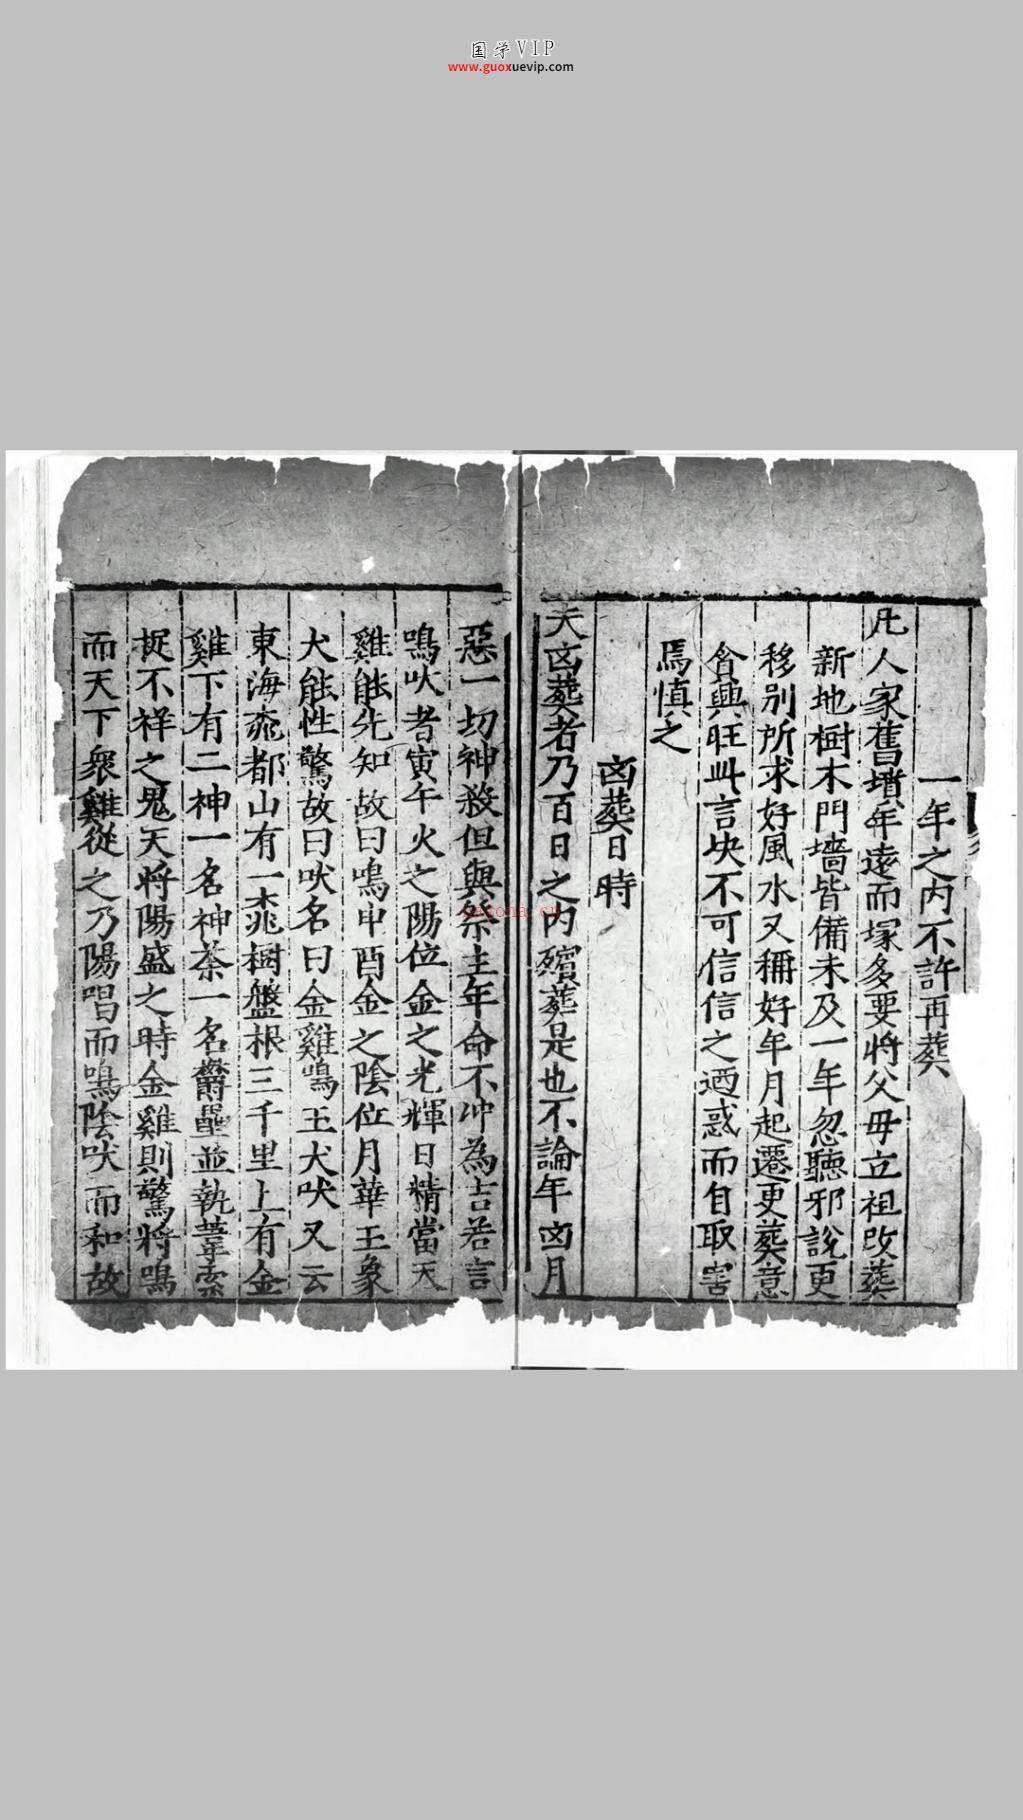 国学VIP
www.guoxuevip.com
一年之内不許再葬
凡人家舊墳年遠而塚多要將父母立祖改葬
新地樹木門墻皆備未及一年忽聽邪說更
移别所求好風水又稱好年月起遷更葬意
貪興旺此言決不可信信之迺惑而自取害
焉慎之
凶葬日時
夫凶葬者乃百日之内殯葬是也不論年凶月
惡一切神殺但與祭主年命不冲為吉若言
鳴吠者寅午火之陽位金之光輝日精當天
雞能先知故曰鳴申酉金之陰位月華玉象
犬能性驚故曰吠名曰金雞鳴玉犬吠又云
東海度都山有一桃樹盤根三千里上有金
雞下有二神一名神荼一名鬱壘並執葦索
捉不祥之鬼天將陽盛之時金雞則驚將鳴
而天下衆雞從之乃陽唱而鳴陰吠而和故